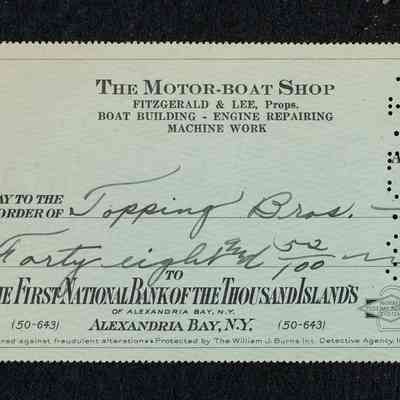 THE MOTOR-BOAT SHOP
FITZGERALD & LEE, Props.
BOAT BUILDING - ENGINE REPAIRING
MACHINE WORK
A
AY TO THE
ORDER OF Topping Bros.
Forty eight and 52/100
TO
HE FIRST NATIONAL BANK OF THE THOUSAND ISLANDS
OF ALEXANDRIA BAY, N.Y.
(50-643) ALEXANDRIA BAY, N.Y. (50-643)
ured against fraudulent alterations • Protected by The William J. Burns Int. Detective Agency, I